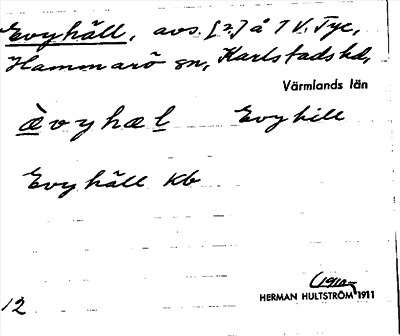 Evyhäll, avs. [?] å 7 V. Tye,
Hammarö sn, Karlstads hd,
Värmlands län
ævyhæl Evyhill
Evyhäll Kb
(1910)
HERMAN HULTSTRÖM 1911
12